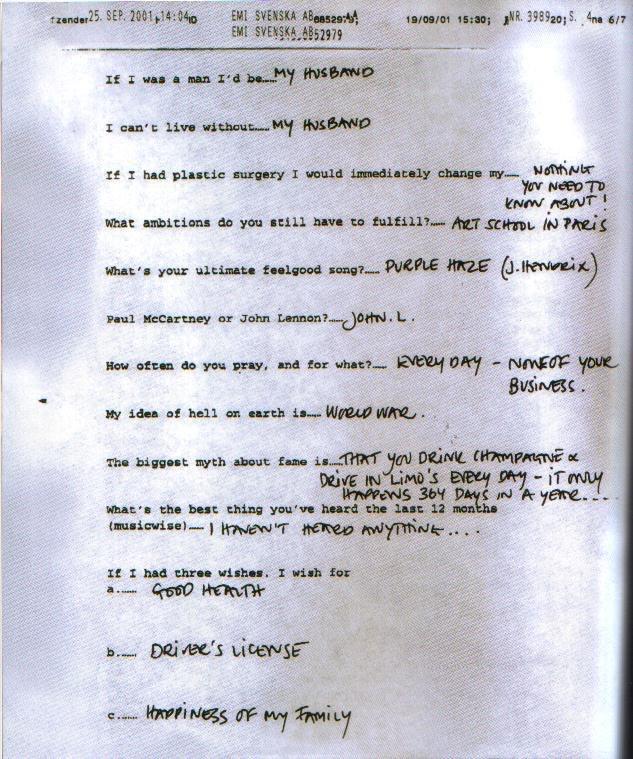 25. SEP. 2001 14:04 EMI SVENSKA AB 19/09/01 15:30; NR. 3989 S. 6/7
EMI SVENSKA AB 52979
If I was a man I'd be..... MY HUSBAND
I can't live without..... MY HUSBAND
If I had plastic surgery I would immediately change my..... NOTHING
YOU NEED TO
KNOW ABOUT!
What ambitions do you still have to fulfill?..... ART SCHOOL IN PARIS
What's your ultimate feelgood song?..... PURPLE HAZE (J. HENDRIX)
Paul McCartney or John Lennon?..... JOHN. L.
How often do you pray, and for what?..... EVERY DAY – NONE OF YOUR
BUSINESS.
My idea of hell on earth is..... WORLD WAR.
The biggest myth about fame is..... THAT YOU DRINK CHAMPAGNE &
DRIVE IN LIMO'S EVERY DAY – IT ONLY
HAPPENS 364 DAYS IN A YEAR....
What's the best thing you've heard the last 12 months
(musicwise)..... I HAVEN'T HEARD ANYTHING....
If I had three wishes, I wish for
a...... GOOD HEALTH
b...... DRIVER'S LICENSE
c...... HAPPINESS OF MY FAMILY